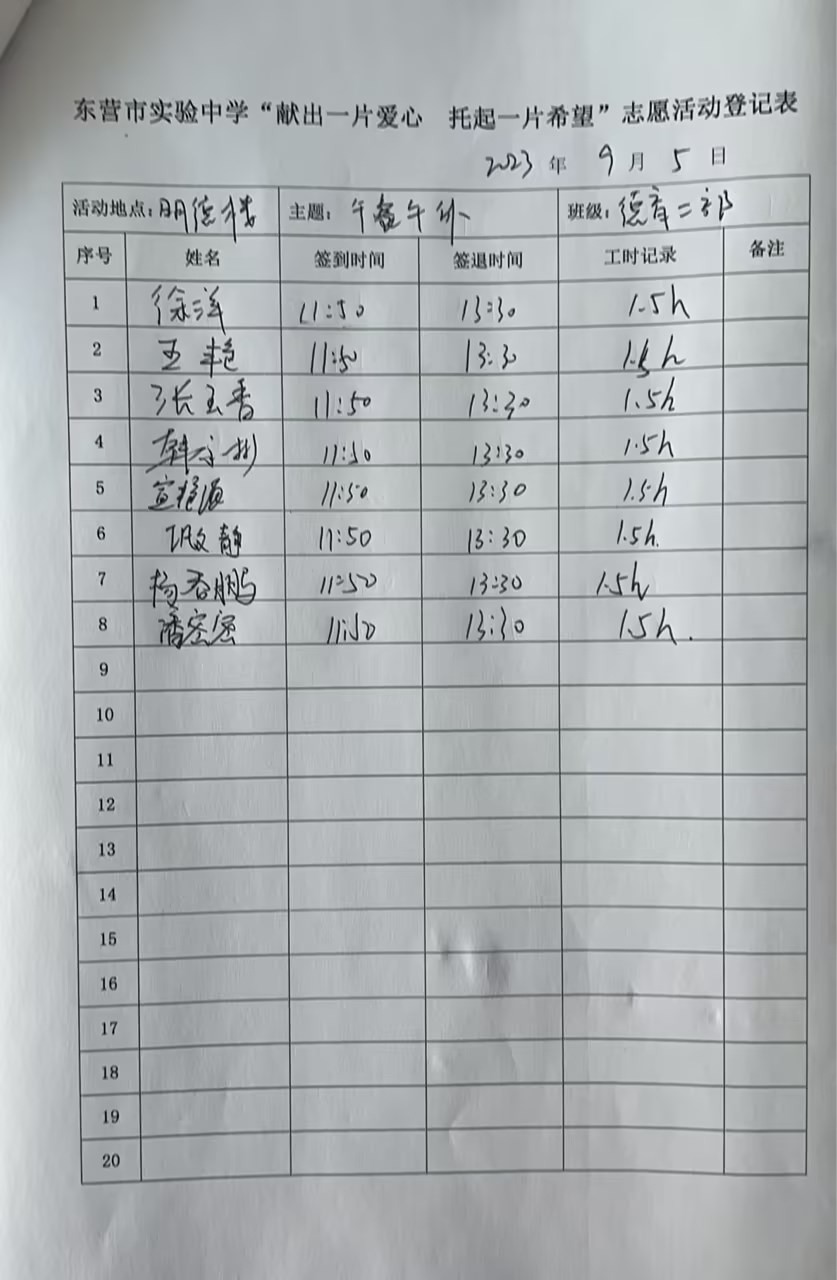 东营市实验中学“献出一片爱心 托起一片希望”志愿活动登记表
2023 年 9 月 5 日
活动地点：明德楼 主题：午餐午休 班级：德育二部
序号 姓名 签到时间 签退时间 工时记录 备注
1 徐洋 11:50 13:30 1.5h
2 王艳 11:50 13:30 1.5h
3 张玉香 11:50 13:30 1.5h
4 韩 11:50 13:30 1.5h
5 11:50 13:30 1.5h
6 巩文静 11:50 13:30 1.5h.
7 杨春鹏 11:50 13:30 1.5h
8 潘密密 11:50 13:30 1.5h.
9
10
11
12
13
14
15
16
17
18
19
20